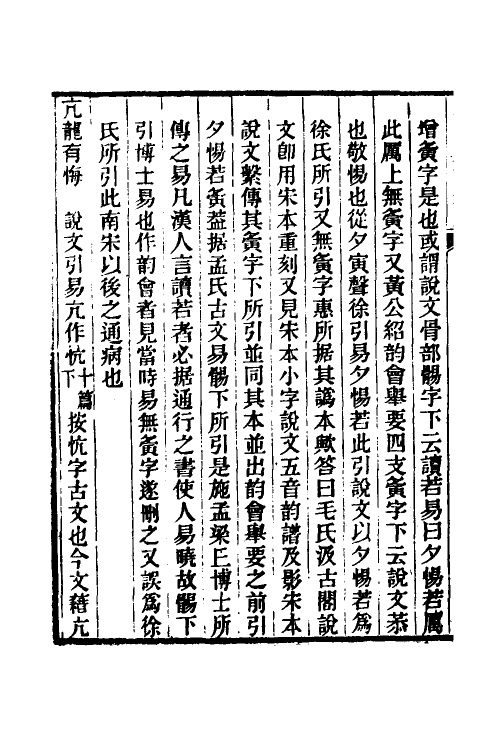 增夤字是也或謂說文骨部䯜字下云讀若易曰夕惕若厲
此厲上無夤字又黃公紹韵會舉要四支夤字下云說文恭
也敬惕也從夕寅聲徐引易夕惕若此引說文以夕惕若爲
徐氏所引又無夤字惠所据其譌本歟答曰毛氏汲古閣說
文卽用宋本重刻又見宋本小字說文五音韵譜及影宋本
說文繫傳其夤字下所引並同其本並出韵會舉要之前引
夕惕若夤葢据孟氏古文易䯜下所引是施孟梁丘博士所
傳之易凡漢人言讀若者必据通行之書使人易曉故䯜下
引博士易也作韵會者見當時易無夤字遂刪之又誤爲徐
氏所引此南宋以後之通病也
亢龍有悔　說文引易亢作忼十篇下按忼字古文也今文藉亢